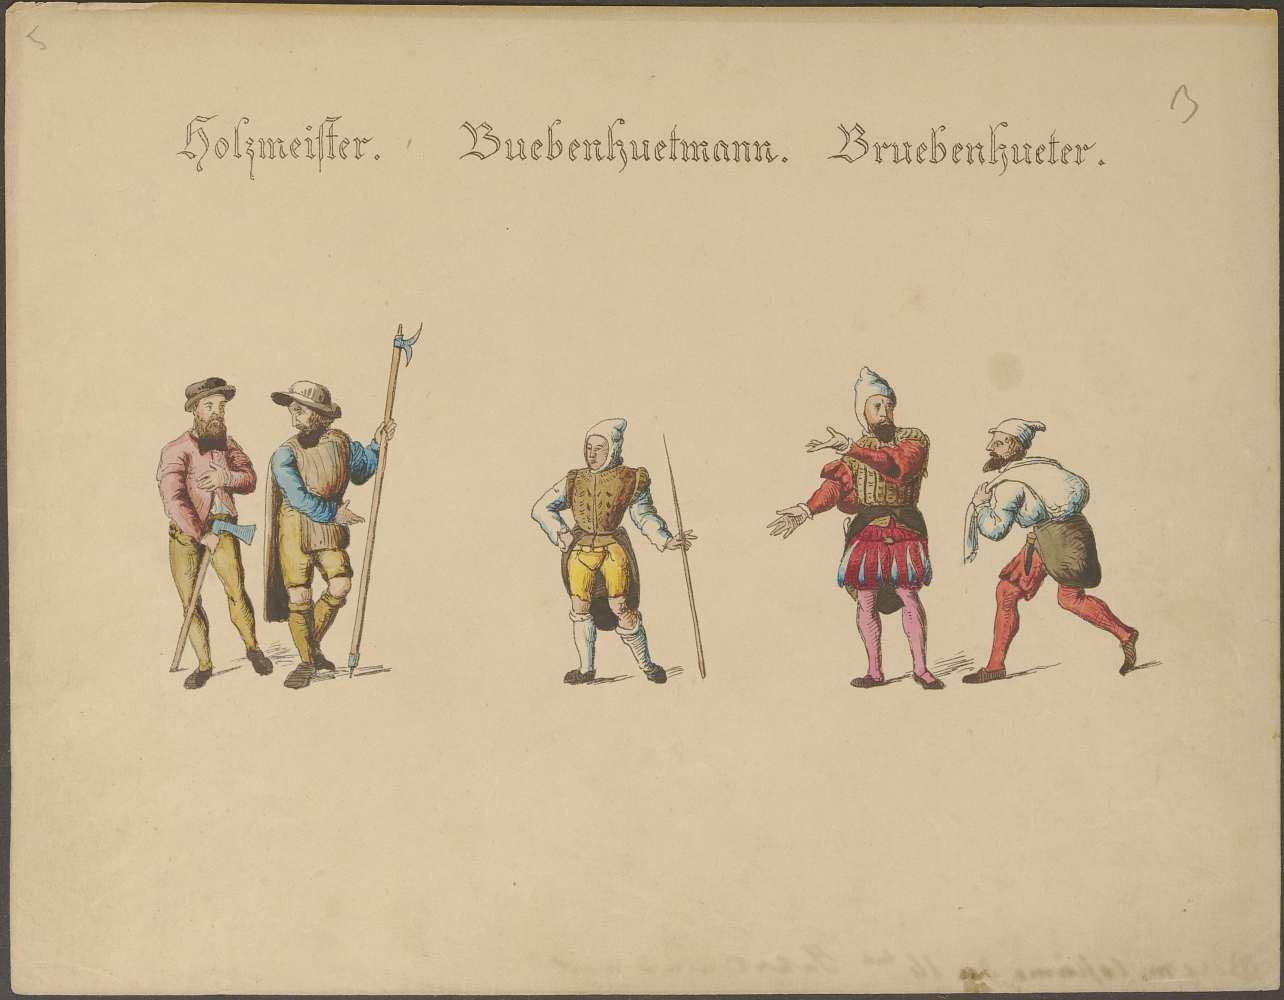 Holzmeister. Buebenhuetmann. Bruebenhueter.